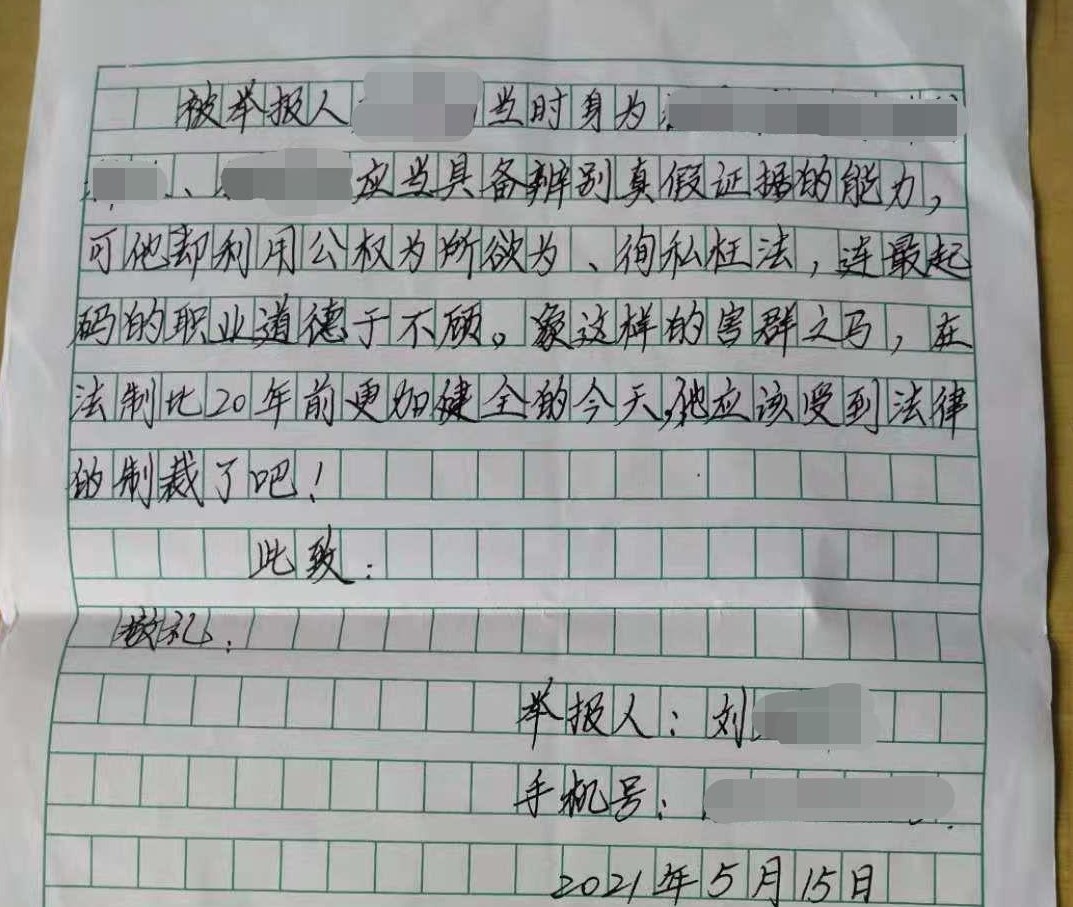 被举报人 当时身为
、 应当具备辨别真假证据的能力,
可他却利用公权为所欲为、徇私枉法,连最起
码的职业道德于不顾。象这样的害群之马,在
法制比20年前更加健全的今天,他应该受到法律
的制裁了吧!
此致:
敬礼:
举报人:刘
手机号:
2021年5月15日